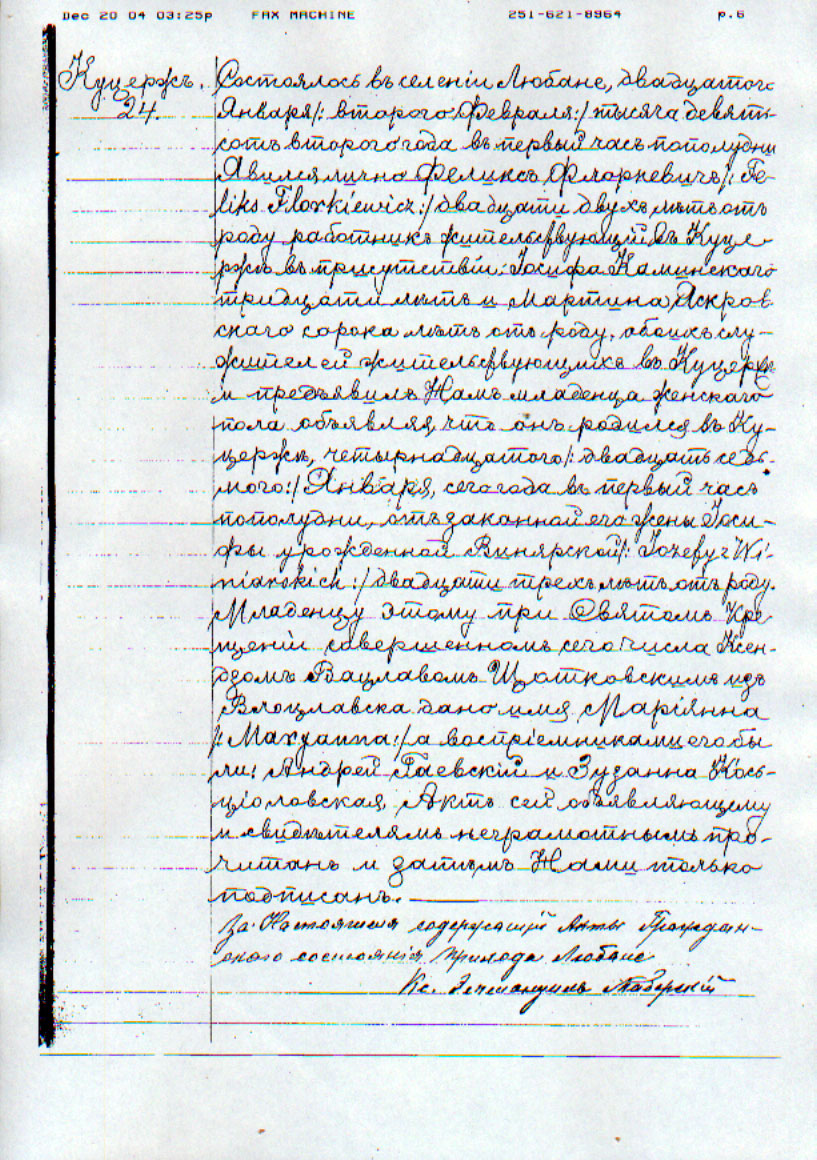 Dec 20 04 03:25p FAX MACHINE 251-621-8964 p.6
Куцержъ.
24.
Состоялось въ селеніи Любане, двадцатого
Января/: второго Февраля:/ тысяча девять-
сотъ второго года въ первый часъ пополудни
Явился лично Феликсъ Флоркевичъ/: Fe-
liks Florkiewicz:/ двадцати двухъ лѣтъ отъ
роду работникъ жительствующій въ Куце-
ржѣ въ присутствіи: Іосифа Каминскаго
тридцати лѣтъ и Мартина Яскров-
скаго сорока лѣтъ отъ роду, обоихъ слу-
жителей жительствующихъ въ Куцержѣ
и предъявилъ Намъ младенца женскаго
пола объявляя, что онъ родился въ Ку-
цержѣ, четырнадцатого/: двадцать седь-
мого:/ Января, сего года въ первый часъ
пополудни, отъ законной его жены Іоси-
фы урожденной Винярской/: Józefy z Wi-
niarskich:/ двадцати трехъ лѣтъ отъ роду.
Младенцу этому при Святомъ Кре-
щеніи совершенномъ сего числа Ксен-
дзомъ Вацлавомъ Щотковскимъ изъ
Влоцлавска дано имя Маріянна
/: Maryanna:/ а воспріемниками его бы
ли: Андрей Гаевскій и Зузанна Кось-
ціоловская. Актъ сей объявляющему
и свидѣтелямъ неграмотнымъ про-
читанъ и затѣмъ Нами только
подписанъ.
За Настоятеля содержащій Акты Граждан-
ского состоянія прихода Любане
Кс.